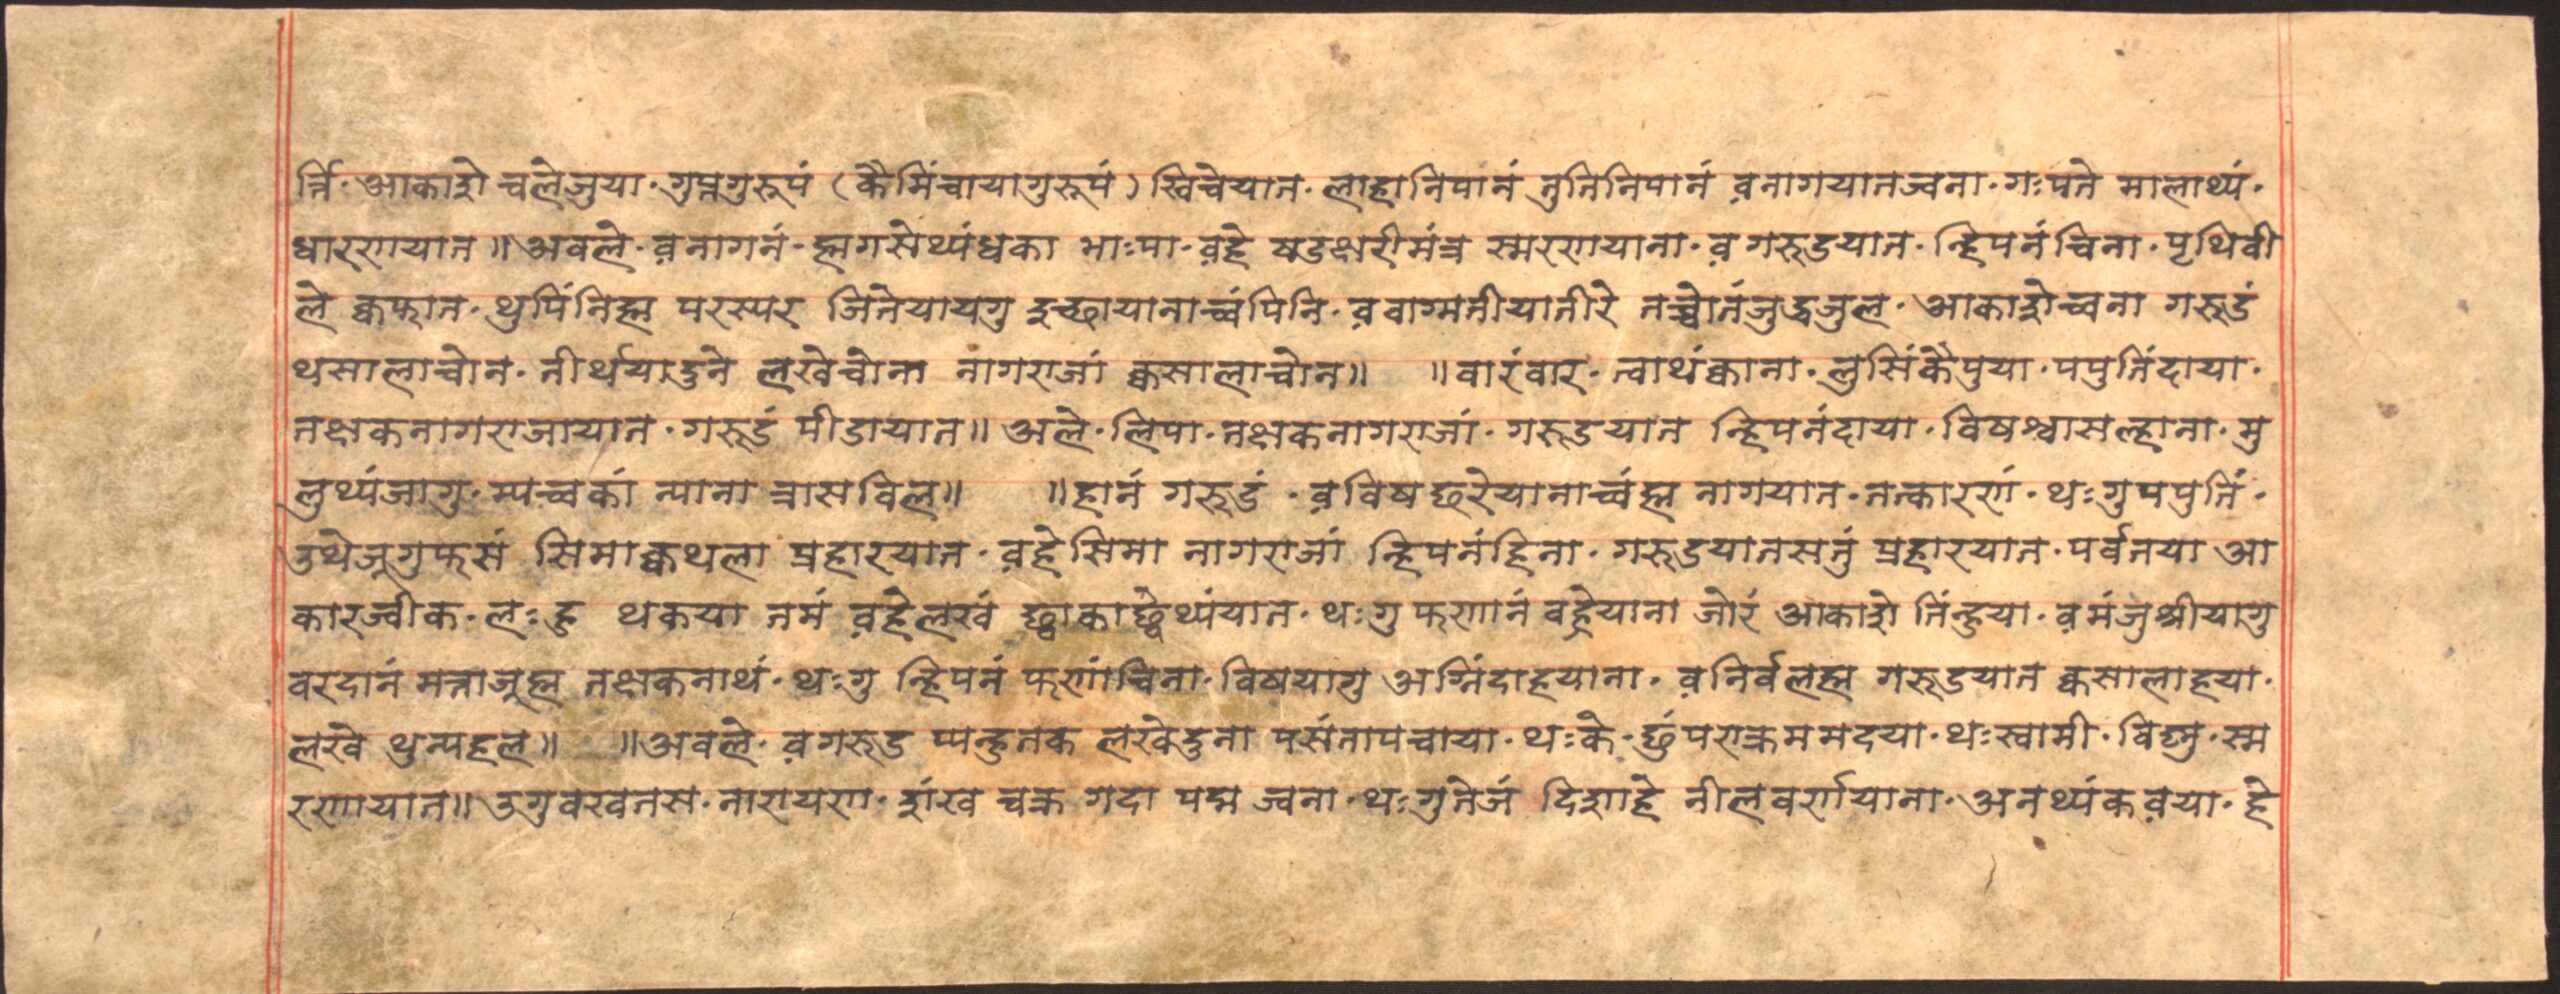 र्न्नि· आकाशे च्वले जुया· गुप्तगुरूपं (कैमिंचायागुरूपं) खिचेयात· लाहानिपानं तुनिनिपानं व़नागयातज्वना· गःपते मालाथ्यं·
धारणायात॥ अवले· व़नागनं· ह्मगसेथ्यंधका भाःपा· व़हे षडक्षरीमंत्र स्मरणयाना· व़गरूडयात· न्हिपनंचिना· पृथिवी
ले क्वफात· थुपिंनिह्म परस्पर जिंतेयायगु इच्छायानाच्वंपिनि· व़वाग्मतीयातीरे तच्वोतंजुद्धजुल· आकाशेच्वना गरूडं
थसालाच्वोन· तीर्थयादुने लखेच्वोना नागराजां क्वसालाच्वोन॥ ॥वारंवार· त्वाथंक्वाना· लुसिंकैपुया· पपुतिंदाया·
तक्षकनागराजायात· गरूडं पीडायात॥ अले· लिपा· तक्षकनागराजां· गरूडयात न्हिपनंदाया· विषश्वासल्हाना· मु
लुथ्यंजागु· म्पच्वकां न्याना त्रासविल॥ ॥हानं गरूडं· व़विषछरेयानाच्वंह्म नागयात· तत्कारणं· थःगुपपुतिं·
उथेजूगुफसं सिमाक्वथला प्रहारयात· व़हेसिमा नागराजां न्हिपनंहिना· गरूडयातसतुं प्रहारयात· पर्वतया आ
कारज्वीक· लःहु थकया नमं व़हेलखं छ्वाकाछ्वेथ्यंयात· थःगु फणानं वह्रेयाना जोरं आकाशे तिंन्हुया· व़मंजुश्रीयागु
वरदानं मत्ताजूह्म तक्षकनाथं· थःगु न्हिपनं फणांचिना· विषयागु अग्निंदाहयाना· व़निर्वलह्म गरूडयात क्वसालाहया·
लखे थुन्यहल॥ ॥अवले· व़गरूड प्यन्हुतक लखेदुना पसंतापचाया· थःके· छुं पराक्रममदया· थःस्वामी· विष्णु· स्म
रणायात॥ उगुवखतस· नारायण· शंख चक्र गदा पद्म ज्वना· थःगुतेजं दिशाहे नीलवर्णयाना· अनथ्यंकव़या· हे